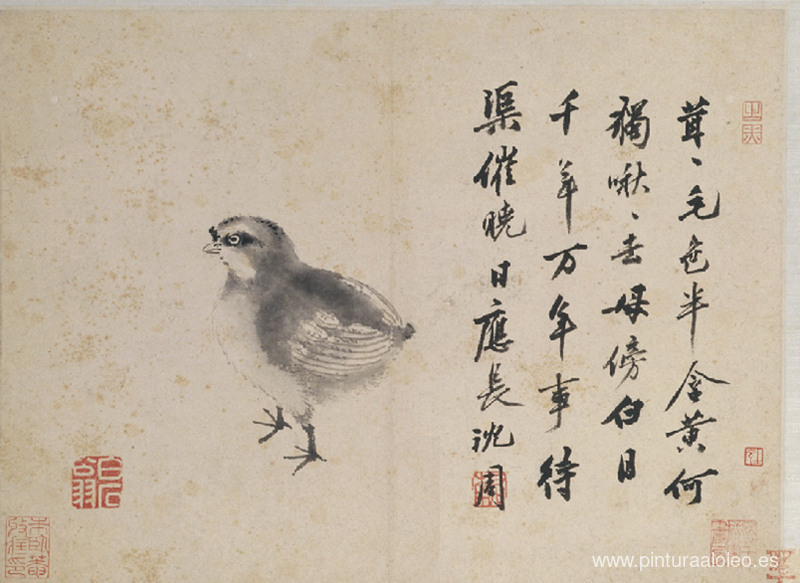 茸〻毛色半含黃何
獨啾〻去母傍白日
千年万年事待
渠催曉日應長沈周
白石翁
www.pinturaaloleo.es